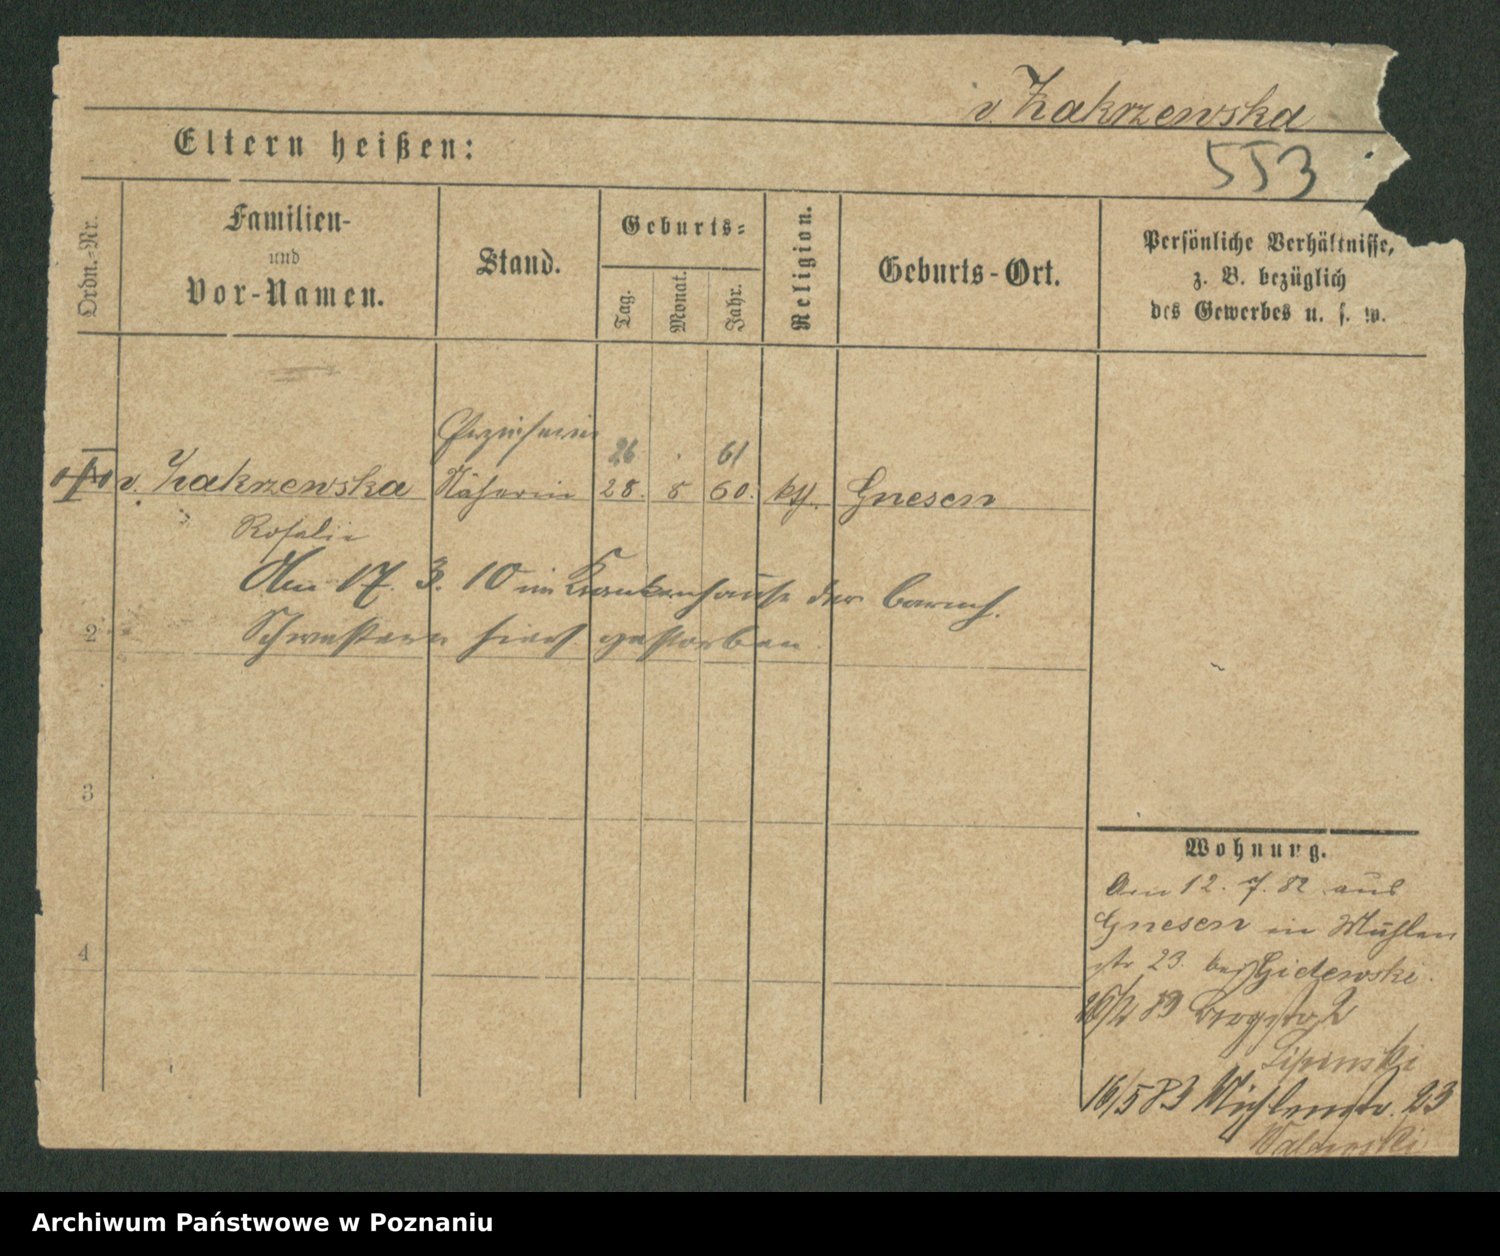 v. Zakrzewska
Eltern heißen:
553
Ordn.-Nr.
Familien-
und
Vor-Namen.
Stand.
Geburts-
Tag.
Monat.
Jahr.
Religion.
Geburts-Ort.
Persönliche Verhältnisse,
z. B. bezüglich
des Gewerbes u. s. w.
Erzieherin 26 61
v. Zakrzewska Näherin 28. 8 60. kth. Gnesen
Rosalie
Am 17. 3. 10 im Krankenhause der barmh.
Schwestern hiers. gestorben.
2
3
4
Wohnung.
Am 12. 7. 82 aus
Gnesen in Mühlen
str 23. bei Gidewski.
26/2 83 Bergstr 2
Lipinski
16/5 83 Mühlenstr. 23